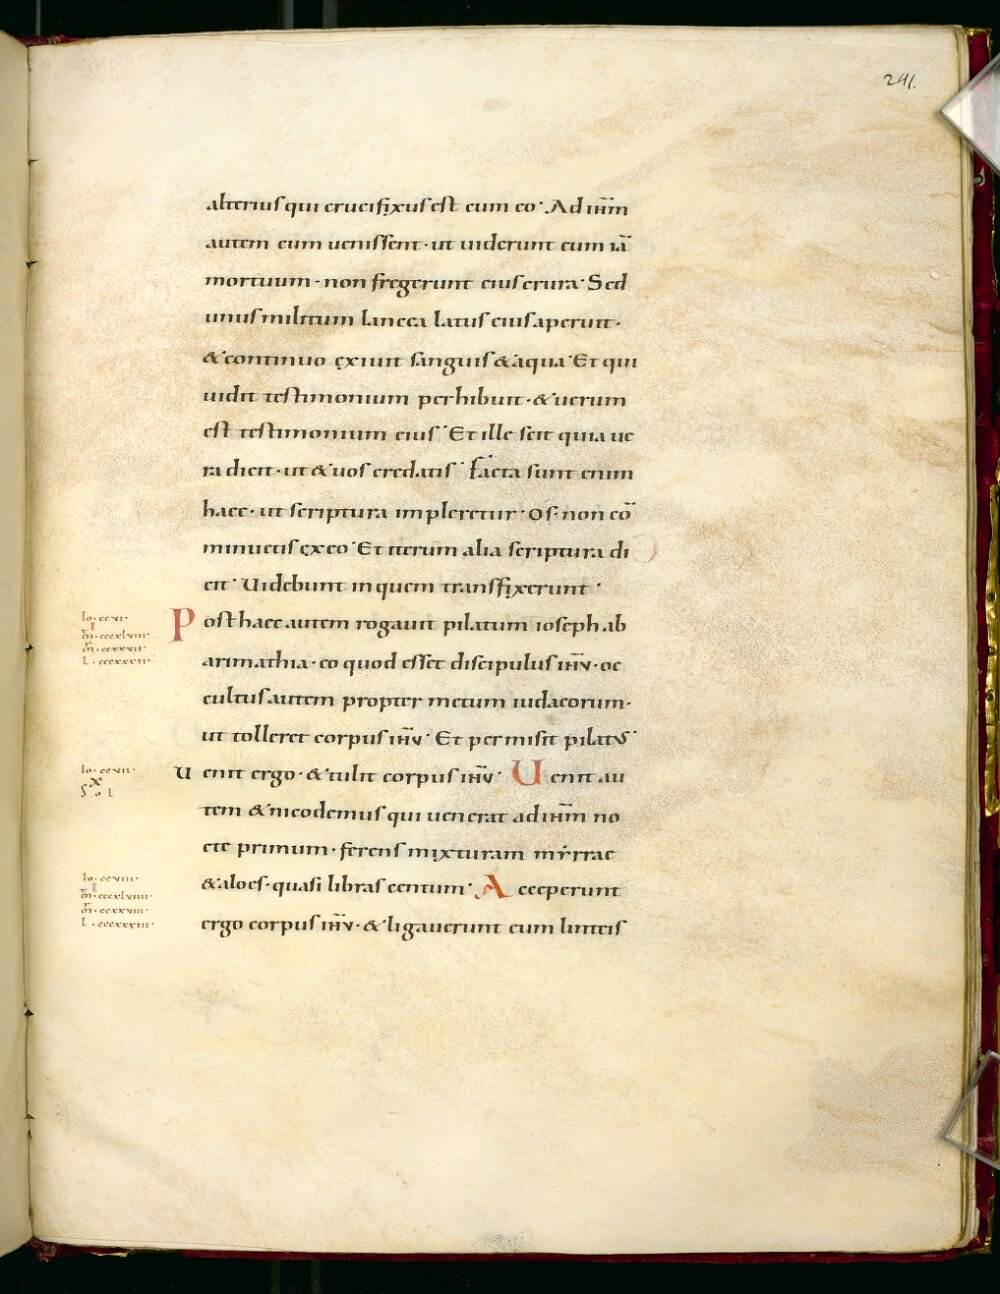 241.
alterius qui crucifixus est cum eo · Ad ihm̅
autem cum uenissent · ut uiderunt eum iā
mortuum · non fregerunt eius crura · Sed
unus militum lancea latus eius aperuit ·
& continuo exiuit sanguis & aqua · Et qui
uidit testimonium perhibuit · & uerum
est testimonium eius · Et ille scit quia ue
ra dicit · ut & uos credatis · facta sunt enim
haec · ut scriptura impleretur · Os · non cō
minuetis ex eo · Et iterum alia scriptura di
cit · Uidebunt in quem transfixerunt ·
Io · ccvi ·
Post haec autem rogauit pilatum ioseph ab
m̅ · ccxxvii ·
arimathia · eo quod esset discipulus ihv̅ · oc
cultus autem propter metum iudaeorum ·
ut tolleret corpus ihv̅ · Et permisit pilatus ·
Io · ccvii ·
Uenit ergo · & tulit corpus ihv̅ · Uenit au
tem & nicodemus qui uenerat ad ihm̅ no
cte primum · ferens mixturam myrrae
Io · ccviii ·
& aloes · quasi libras centum · Acceperunt
m̅ · ccxxviii ·
ergo corpus ihv̅ · & ligauerunt eum linteis